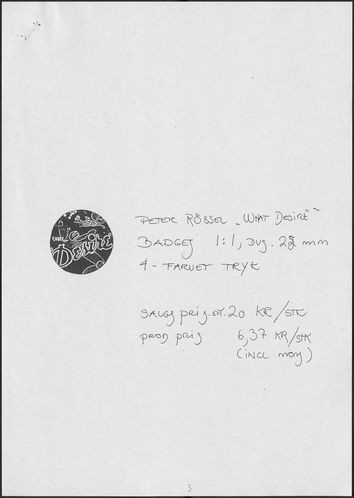 Desiré
PETER RÖSSEL „WHAT DESIRÉ"
BADGES 1:1, DVS. 22 mm
4-FARVET TRYK
SALGS PRIS. 20 KR/STK
PROD PRIS 6,37 KR/STK
(INCL MOMS)
3